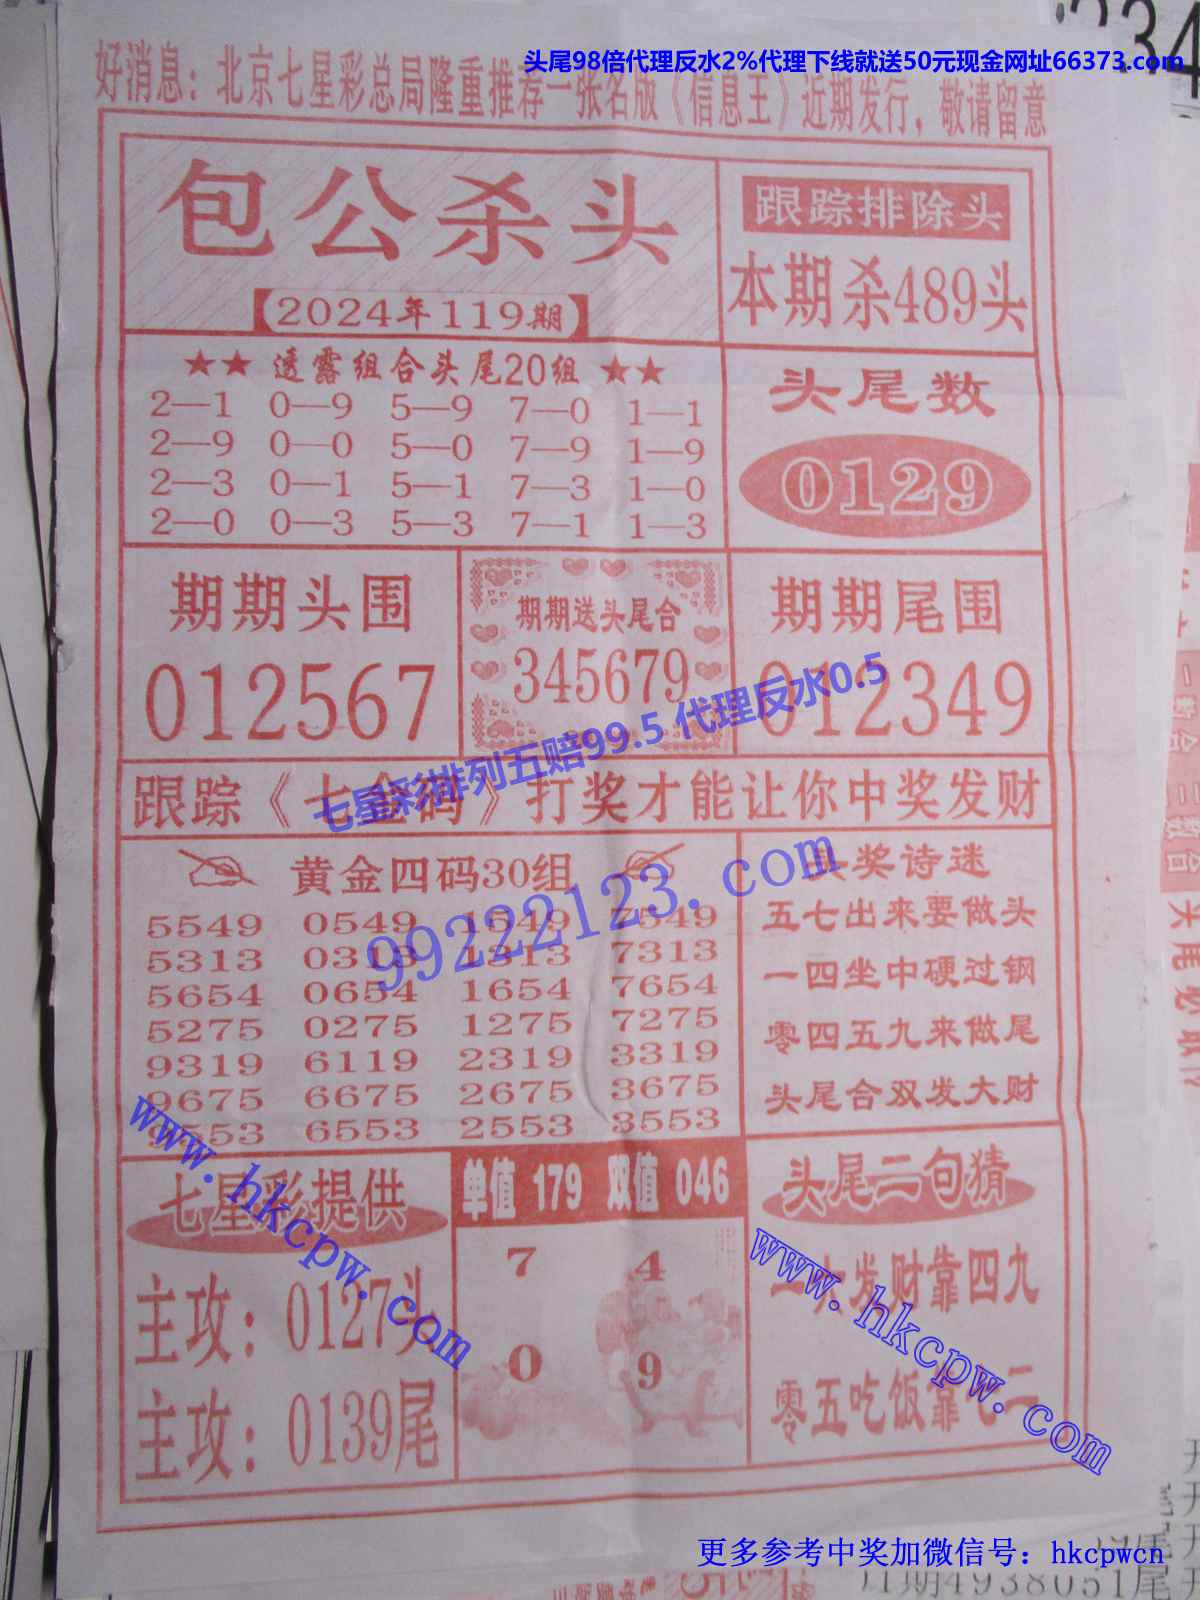 头尾98倍代理反水2%代理下线就送50元现金网址66373.com
好消息：北京七星彩总局隆重推荐一张名版《信息王》近期发行，敬请留意
包公杀头
【2024年119期】
跟踪排除头
本期杀489头
★★ 透露组合头尾20组 ★★
2—1 0—9 5—9 7—0 1—1
2—9 0—0 5—0 7—9 1—9
2—3 0—1 5—1 7—3 1—0
2—0 0—3 5—3 7—1 1—3
头尾数
0129
期期头围
012567
期期送头尾合
345679
期期尾围
012349
七星彩排列五赔99.5 代理反水0.5
跟踪《七金码》打奖才能让你中奖发财
黄金四码30组
5549 0549 1549 7549
5313 0313 1313 7313
5654 0654 1654 7654
5275 0275 1275 7275
9319 6119 2319 3319
9675 6675 2675 3675
9553 6553 2553 3553
99222123.com
头奖诗迷
五七出来要做头
一四坐中硬过钢
零四五九来做尾
头尾合双发大财
七星彩提供
主攻：0127头
主攻：0139尾
www.hkcpw.com
单值 179 双值 046
7 4
0 9
头尾二句猜
一六发财靠四九
零五吃饭靠七二
www.hkcpw.com
更多参考中奖加微信号：hkcpwcn